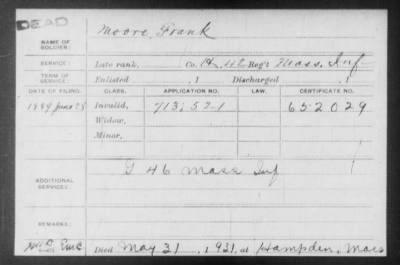 DEAD
NAME OF SOLDIER: Moore, Frank
SERVICE: Late rank, Co. H, 46 Reg't Mass. Inf
TERM OF SERVICE: Enlisted , 1 Discharged , 1
DATE OF FILING. CLASS. APPLICATION NO. LAW. CERTIFICATE NO.
1889 June 28 Invalid, 713,571 652029
Widow,
Minor,
ADDITIONAL SERVICES: 46 Mass Inf
REMARKS:
Died May 31, 1921, at Hampden, Mass